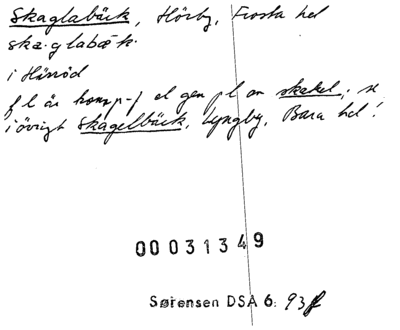 Skaglabäck, Hörby, Frosta hd
ska·glabæ·k·
i Häröd
f l är komp-f el gen pl av skakel; se
i övrigt Skagelbäck, Lyngby, Bara hd!
00031349
Sørensen DSA 6: 93f